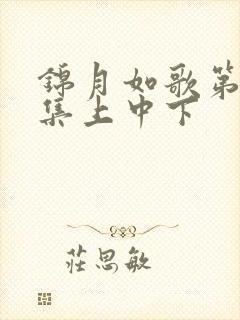 錦月如歌第
集上中下
莊思敏